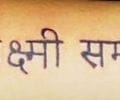 क्ष्मी सम